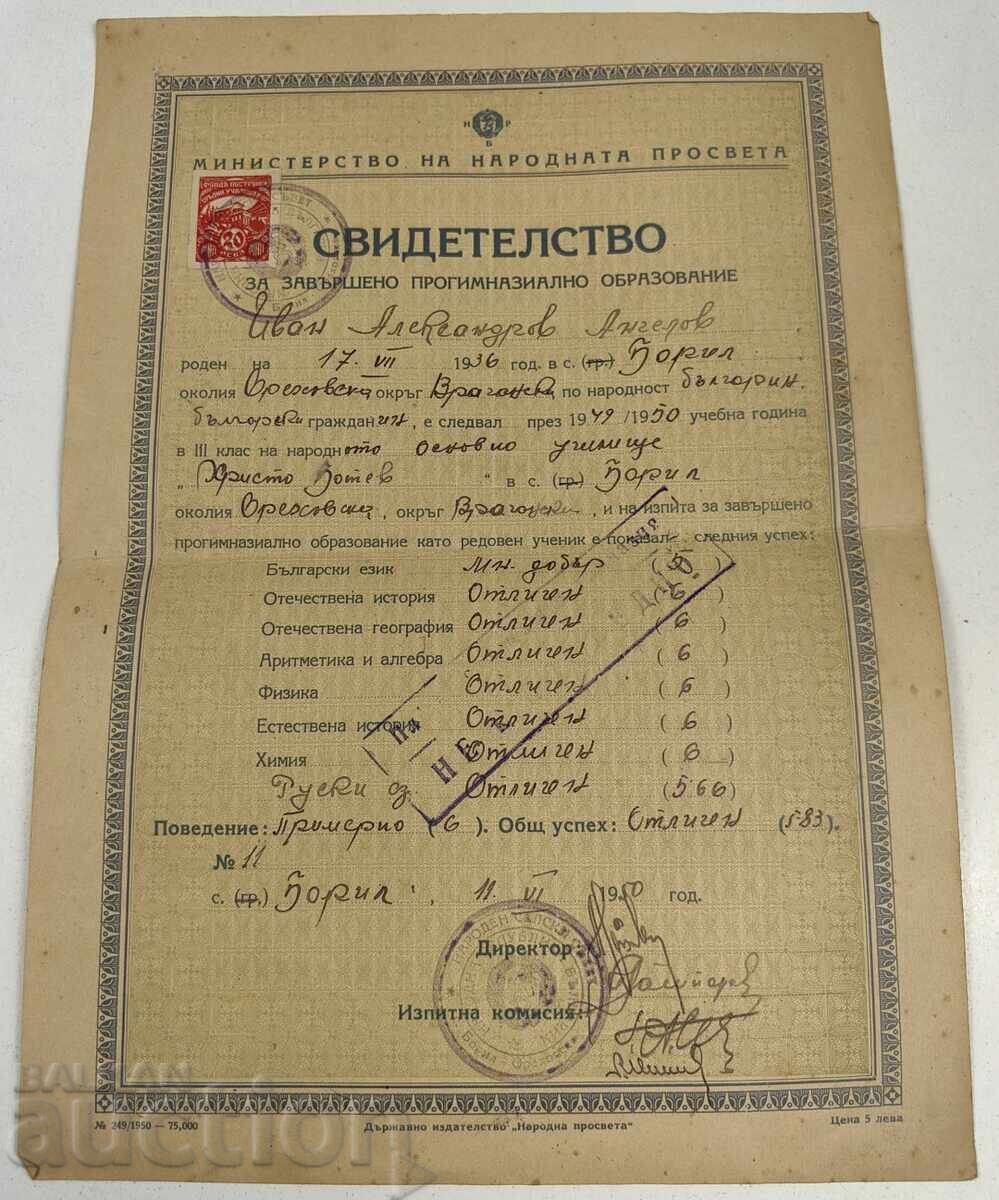 Н Р
Б
МИНИСТЕРСТВО НА НАРОДНАТА ПРОСВЕТА
20
СВИДЕТЕЛСТВО
ЗА ЗАВЪРШЕНО ПРОГИМНАЗИАЛНО ОБРАЗОВАНИЕ
Иван Александров Ангелов
роден на 17. VII 1936 год. в с. (гр.) Борил
околия Ореховска окръг Врачански по народност българин,
български гражданин, е следвал през 1949/1950 учебна година
в III клас на народното основно училище
„Христо Ботев" в с. (гр.) Борил
околия Ореховска, окръг Врачански, и на изпита за завършено
прогимназиално образование като редовен ученик е показал следния успех:
Български език Мн. добър (5)
Отечествена история Отличен (6)
Отечествена география Отличен (6)
Аритметика и алгебра Отличен (6)
Физика Отличен (6)
Естествена история Отличен (6)
Химия Отличен (6)
Руски ез. Отличен (5 66)
Поведение: Примерно (6). Общ успех: Отличен (5·83).
№ 11
с. (гр.) Борил, 11. VI 1950 год.
Директор:
Изпитна комисия:
№ 249/1950 — 75,000 Държавно издателство „Народна просвета" Цена 5 лева
BALKAN
auction